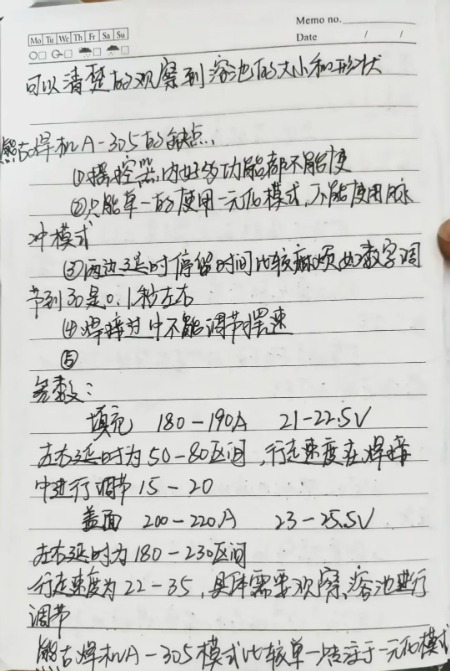 Memo no.
Mo Tu We Th Fr Sa Su
Date / /
可以清楚的观察到溶池的大小和形状
熊古焊机A-305的缺点、
①摇控器内好多功能都不能使
②只能单一的使用一元化模式,不能使用脉
冲模式
③两边延时停留时间比较麻烦如数字调
节到30是0.1秒左右
④焊接过中不能调节摆速
⑤
参数:
填充 180-190A 21-22.5V
左右延时为50-80区间,行走速度在焊接
中进行调节15-20
盖面 200-220A 23-25.5V
左右延时为180-230区间
行走速度为22-35,具体需要观察溶池进行
调节
熊古焊机A-305模式比较单一 于一元化模式